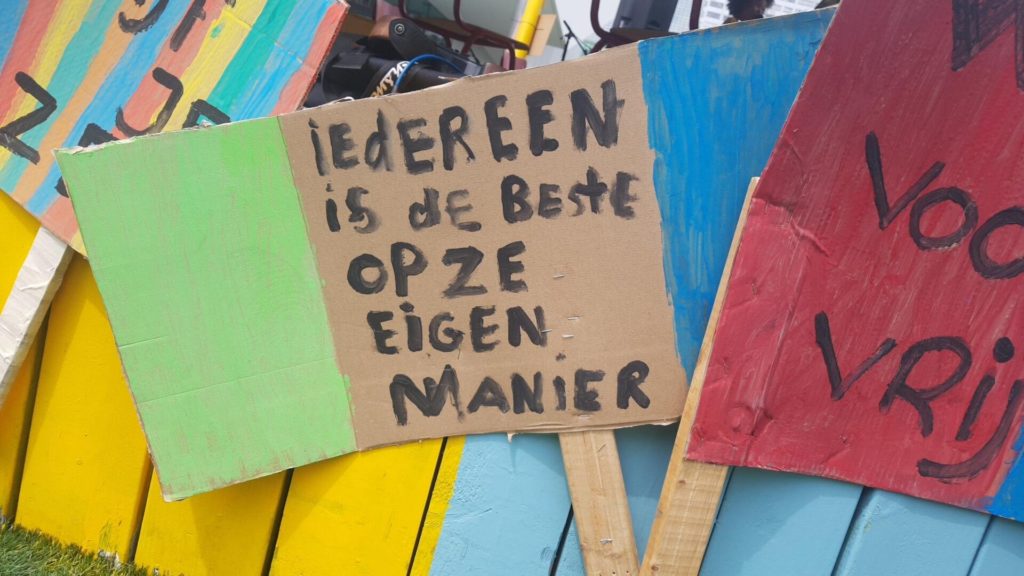 iEdEREEN
is de BEstE
OPZE
EiGEN
MANiER
Voo
VRij